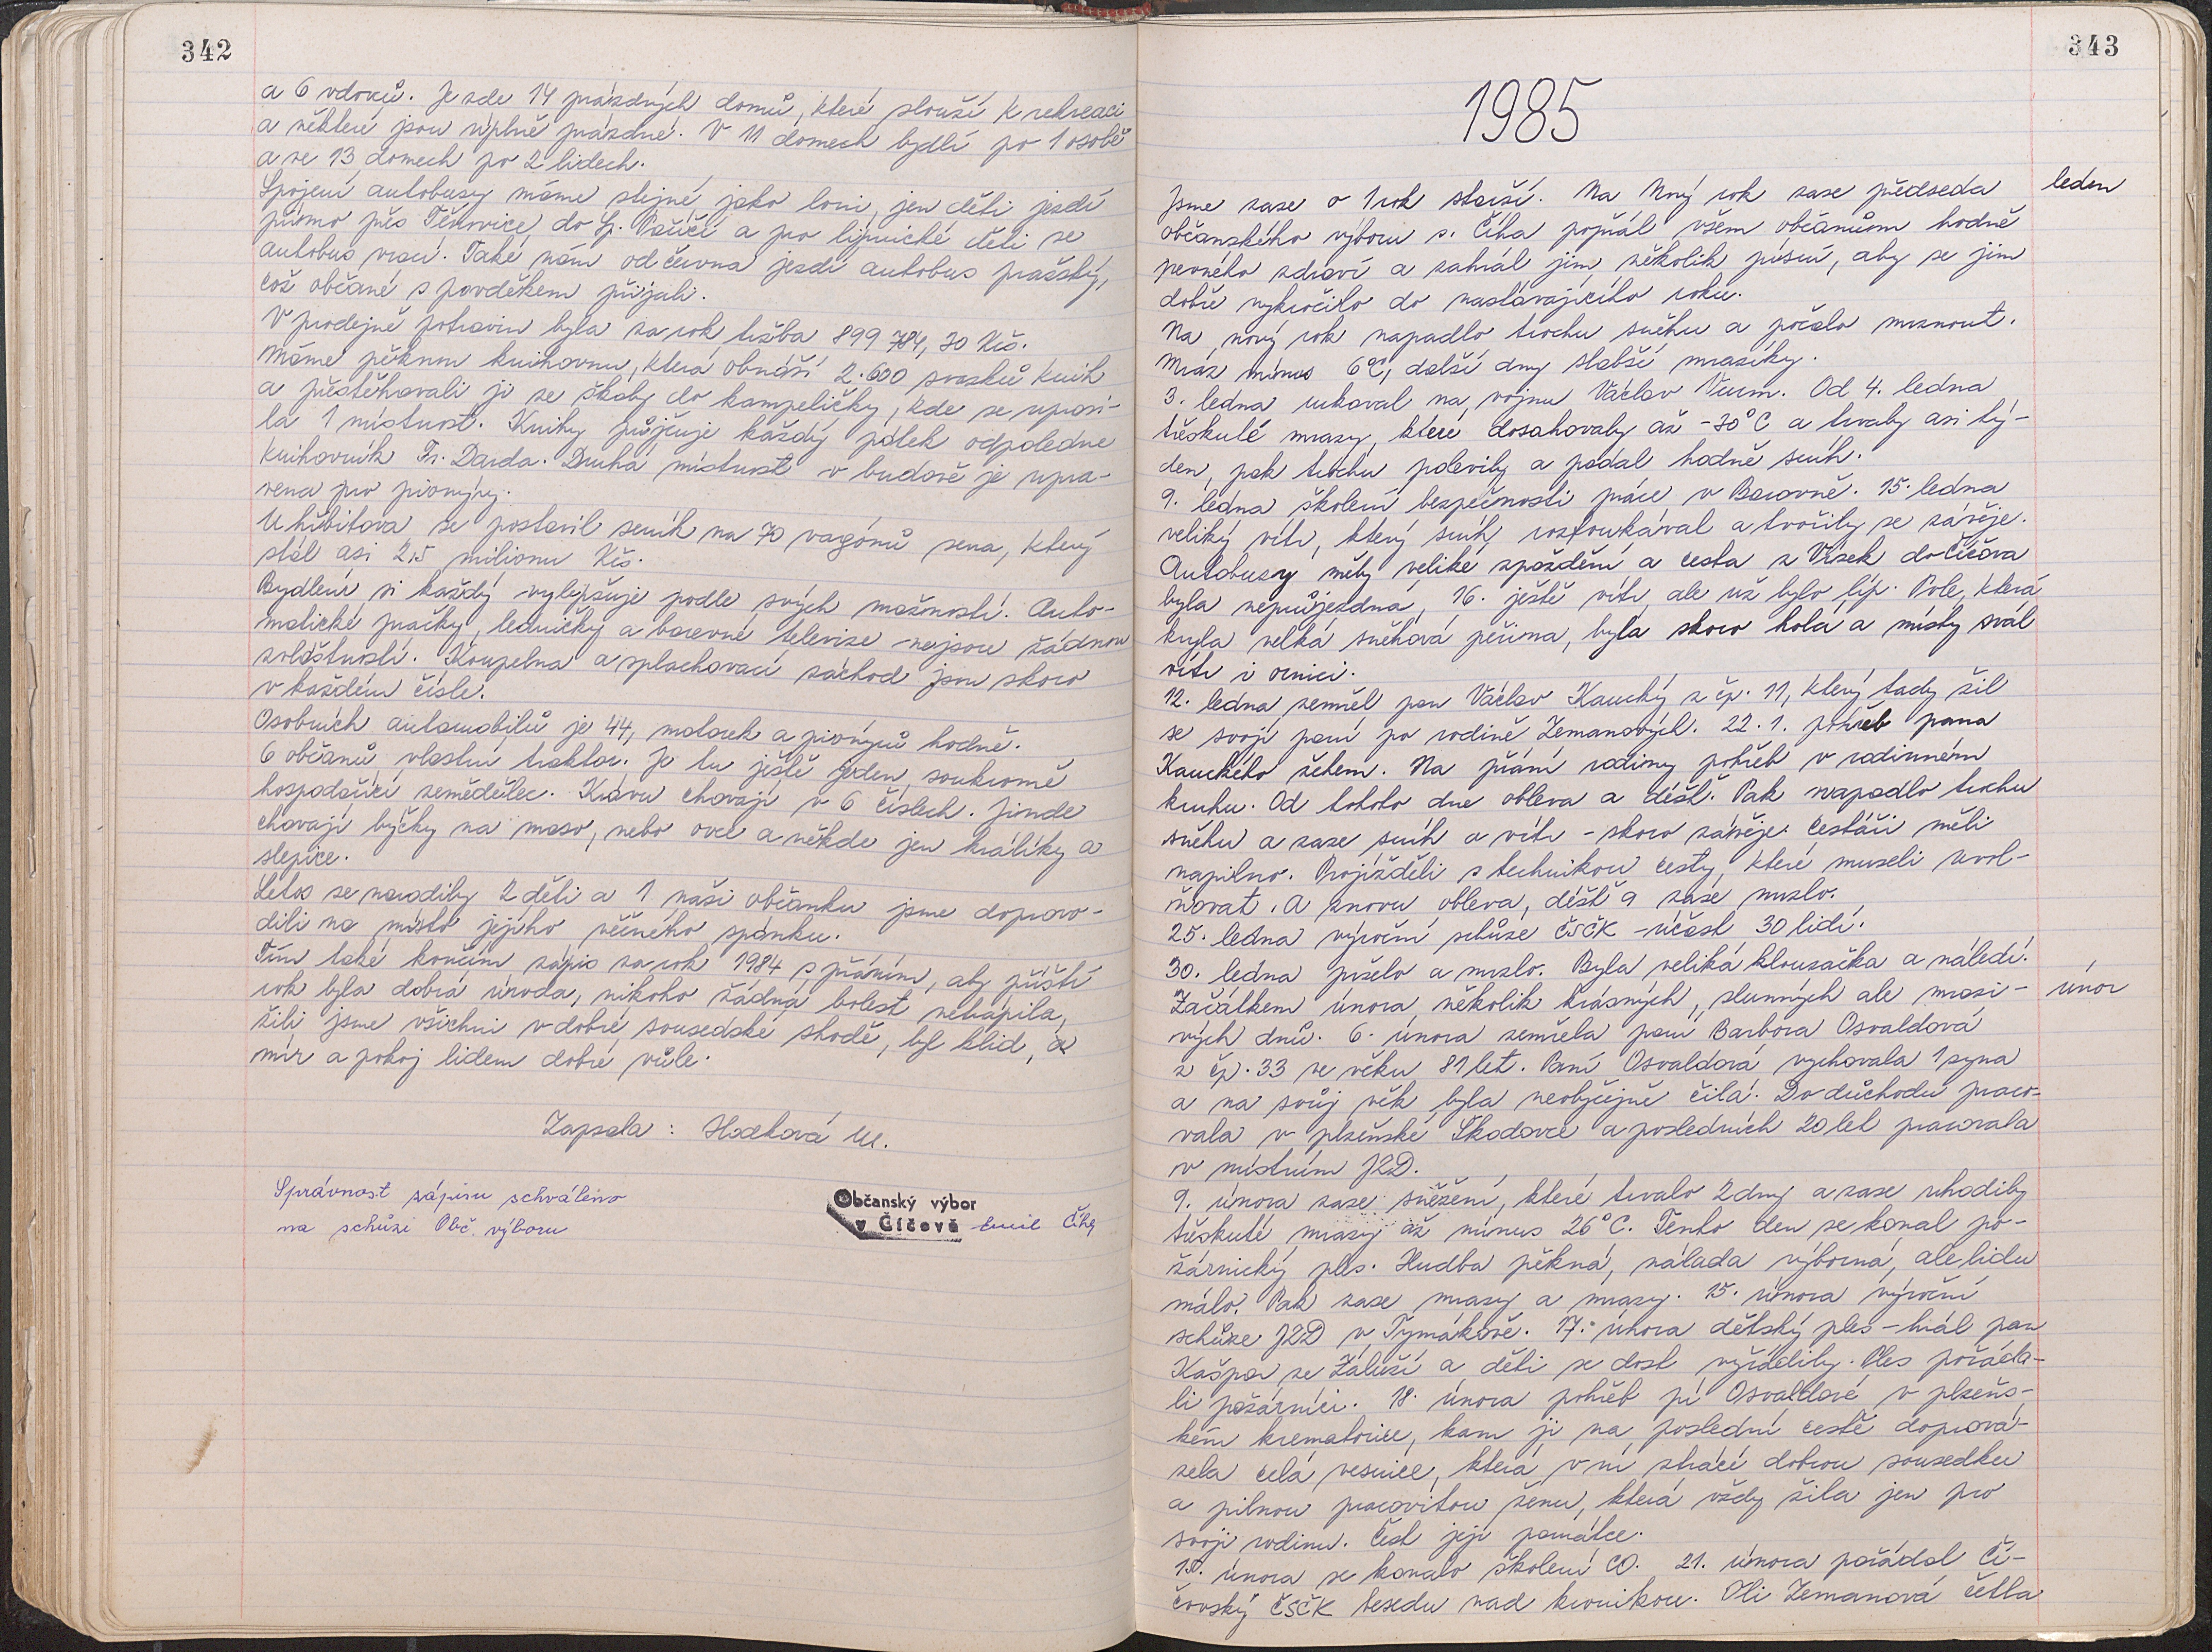 342
a 6 vdovců. Je zde 14 prázdných domů, které slouží k rekreaci
a některé jsou úplně prázdné. V 11 domech bydlí po 1 osobě
a ve 13 domech po 2 lidech.
Spojení autobusy máme stejné jako loni, jen děti jezdí
přímo přes Těnovice do Sp. Poříčí a pro lipnické děti se
autobus vrací. Také nám od června jezdí autobus pražský,
což občané s povděkem přijali.
V prodejně potravin byla za rok tržba 899 784,30 Kčs.
Máme pěknou knihovnu, která obnáší 2.600 svazků knih
a přestěhovali ji ze školy do kampeličky, kde se uprosi-
la 1 místnost. Knihy půjčuje každý pátek odpoledne
knihovník Fr. Darda. Druhá místnost v budově je upra-
vena pro pionýry.
U hřbitova se postavil seník na 70 vagónů sena, který
stál asi 2,5 milionu Kčs.
Bydlení si každý vylepšuje podle svých možností. Auto-
matické pračky, ledničky a barevné televize nejsou žádnou
zvláštností. Koupelna a splachovací záchod jsou skoro
v každém čísle.
Osobních automobilů je 44, motorek a pionýrů hodně.
6 občanů vlastní traktor. Je tu ještě jeden soukromě
hospodařící zemědělec. Krávu chovají v 6 číslech. Jinde
chovají býčky na maso, nebo ovce a někde jen králíky a
slepice.
Letos se narodily 2 děti a 1 naši občanku jsme doprovo-
dili na místo jejího věčného spánku.
Tím také končím zápis za rok 1984 s přáním, aby příští
rok byla dobrá úroda, nikoho žádná bolest netrápila,
žili jsme všichni v dobré sousedské shodě, byl klid, a
mír a pokoj lidem dobré vůle.
Zapsala: Hodková M.
Správnost zápisu schváleno
na schůzi Obč. výboru
Občanský výbor
v Číčově Emil Číha
343
1985
leden
Jsme zase o 1 rok starší. Na Nový rok zase předseda
občanského výboru s. Číha popřál všem občanům hodně
pevného zdraví a zahrál jim několik písní, aby se jim
dobře vykročilo do nastávajícího roku.
Na nový rok napadlo trochu sněhu a počalo mrznout.
Mráz mínus 6°C, další dny slabší mrazíky.
3. ledna rukoval na vojnu Václav Wurm. Od 4. ledna
třeskuté mrazy, které dosahovaly až -30°C a trvaly asi tý-
den, pak trochu polevily a padal hodně sníh.
9. ledna školení bezpečnosti práce v Borovně. 15. ledna
veliký vítr, který sníh rozfoukával a tvořily se závěje.
Autobusy měly veliké zpoždění a cesta z Vísek do Číčova
byla neprůjezdná, 16. ještě vítr, ale už bylo líp. Pole, která
kryla velká sněhová peřina, byla skoro holá a místy svál
vítr i ornici.
12. ledna zemřel pan Václav Kaucký z čp. 11, který tady žil
se svojí paní po rodině Zemanových. 22.1. pohřeb pana
Kauckého žehem. Na přání rodiny pohřeb v rodinném
kruhu. Od tohoto dne obleva a déšť. Pak napadlo trochu
sněhu a zase sníh a vítr - skoro závěje. Cestáři měli
napilno. Projížděli s technikou cesty, které museli uvol-
ňovat. A znovu obleva, déšť a zase mrzlo.
25. ledna výroční schůze ČSČK - účast 30 lidí.
30. ledna pršelo a mrzlo. Byla veliká klouzačka a náledí.
únor
Začátkem února několik krásných, slunných ale mrazi-
vých dnů. 6. února zemřela paní Barbora Osvaldová
z čp. 33 ve věku 81 let. Paní Osvaldová vychovala 1 syna
a na svůj věk byla neobyčejně čilá. Do důchodu praco-
vala v plzeňské Škodovce a posledních 20 let pracovala
v místním JZD.
9. února zase sněžení, které trvalo 2 dny a zase uhodily
třeskuté mrazy až mínus 26°C. Tento den se konal po-
žárnický ples. Hudba pěkná, nálada výborná, ale lidu
málo. Pak zase mrazy a mrazy. 15. února výroční
schůze JZD v Tymákově. 17. února dětský ples - hrál pan
Kašpar ze Záluží a děti se dost vyřádily. Ples pořáda-
li požárníci. 18. února pohřeb pí Osvaldové v plzeňs-
kém krematoriu, kam ji na poslední cestě doprová-
zela celá vesnice, která v ní ztrácí dobrou sousedku
a pilnou pracovitou ženu, která vždy žila jen pro
svoji rodinu. Čest její památce.
února se konalo školení CO. 21. února pořádal Čí-
čovský ČSČK besedu nad kronikou. Oli Zemanová četla